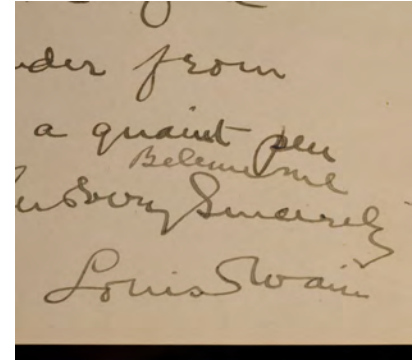 der from
a quaint pen
Believe me
Very Sincerely
Louis Swain